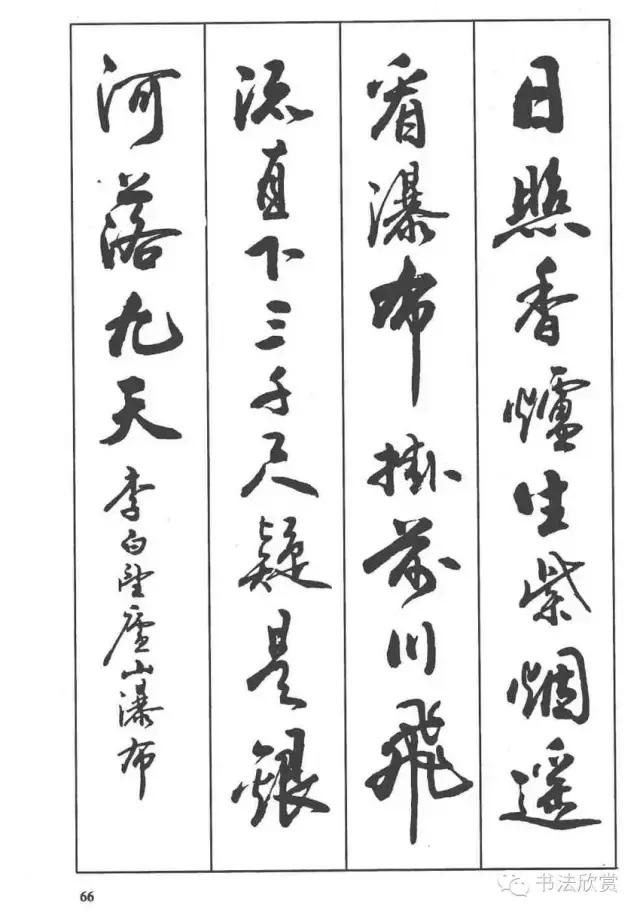 日照香爐生紫烟遥
看瀑布掛前川飛
流直下三千尺疑是銀
河落九天
李白望廬山瀑布
66
书法欣赏